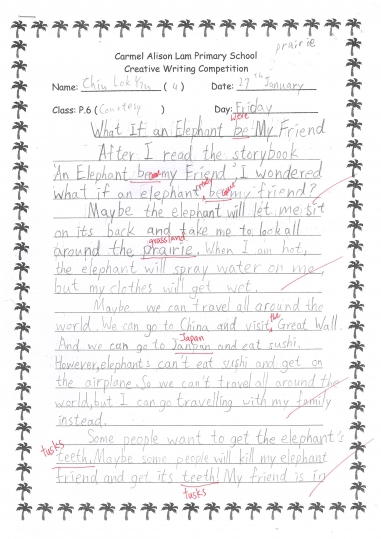 prairie
Carmel Alison Lam Primary School
Creative Writing Competition
Name: Chiu Lok Yiu ( 4 ) Date: 17th January
Class: P.6 ( Courtesy ) Day: Friday
were
What If an Elephant be My Friend
After I read the storybook
"An Elephant be my Friend", I wondered
really
what if an elephant be my friend?
Maybe the elephant will let me sit
on its back and take me to look all
grassland
around the prairie. When I am hot,
the elephant will spray water on me,
but my clothes will get wet.
Maybe we can travel all around the
the
world. We can go to China and visit Great Wall.
Japan
And we can go to Janpan and eat sushi.
However, elephants can't eat sushi and get on
the airplane. So we can't travel all around the
world, but I can go travelling with my family
instead.
Some people want to get the elephant's
tusks
teeth. Maybe some people will kill my elephant
friend and get its teeth! My friend is in
tusks